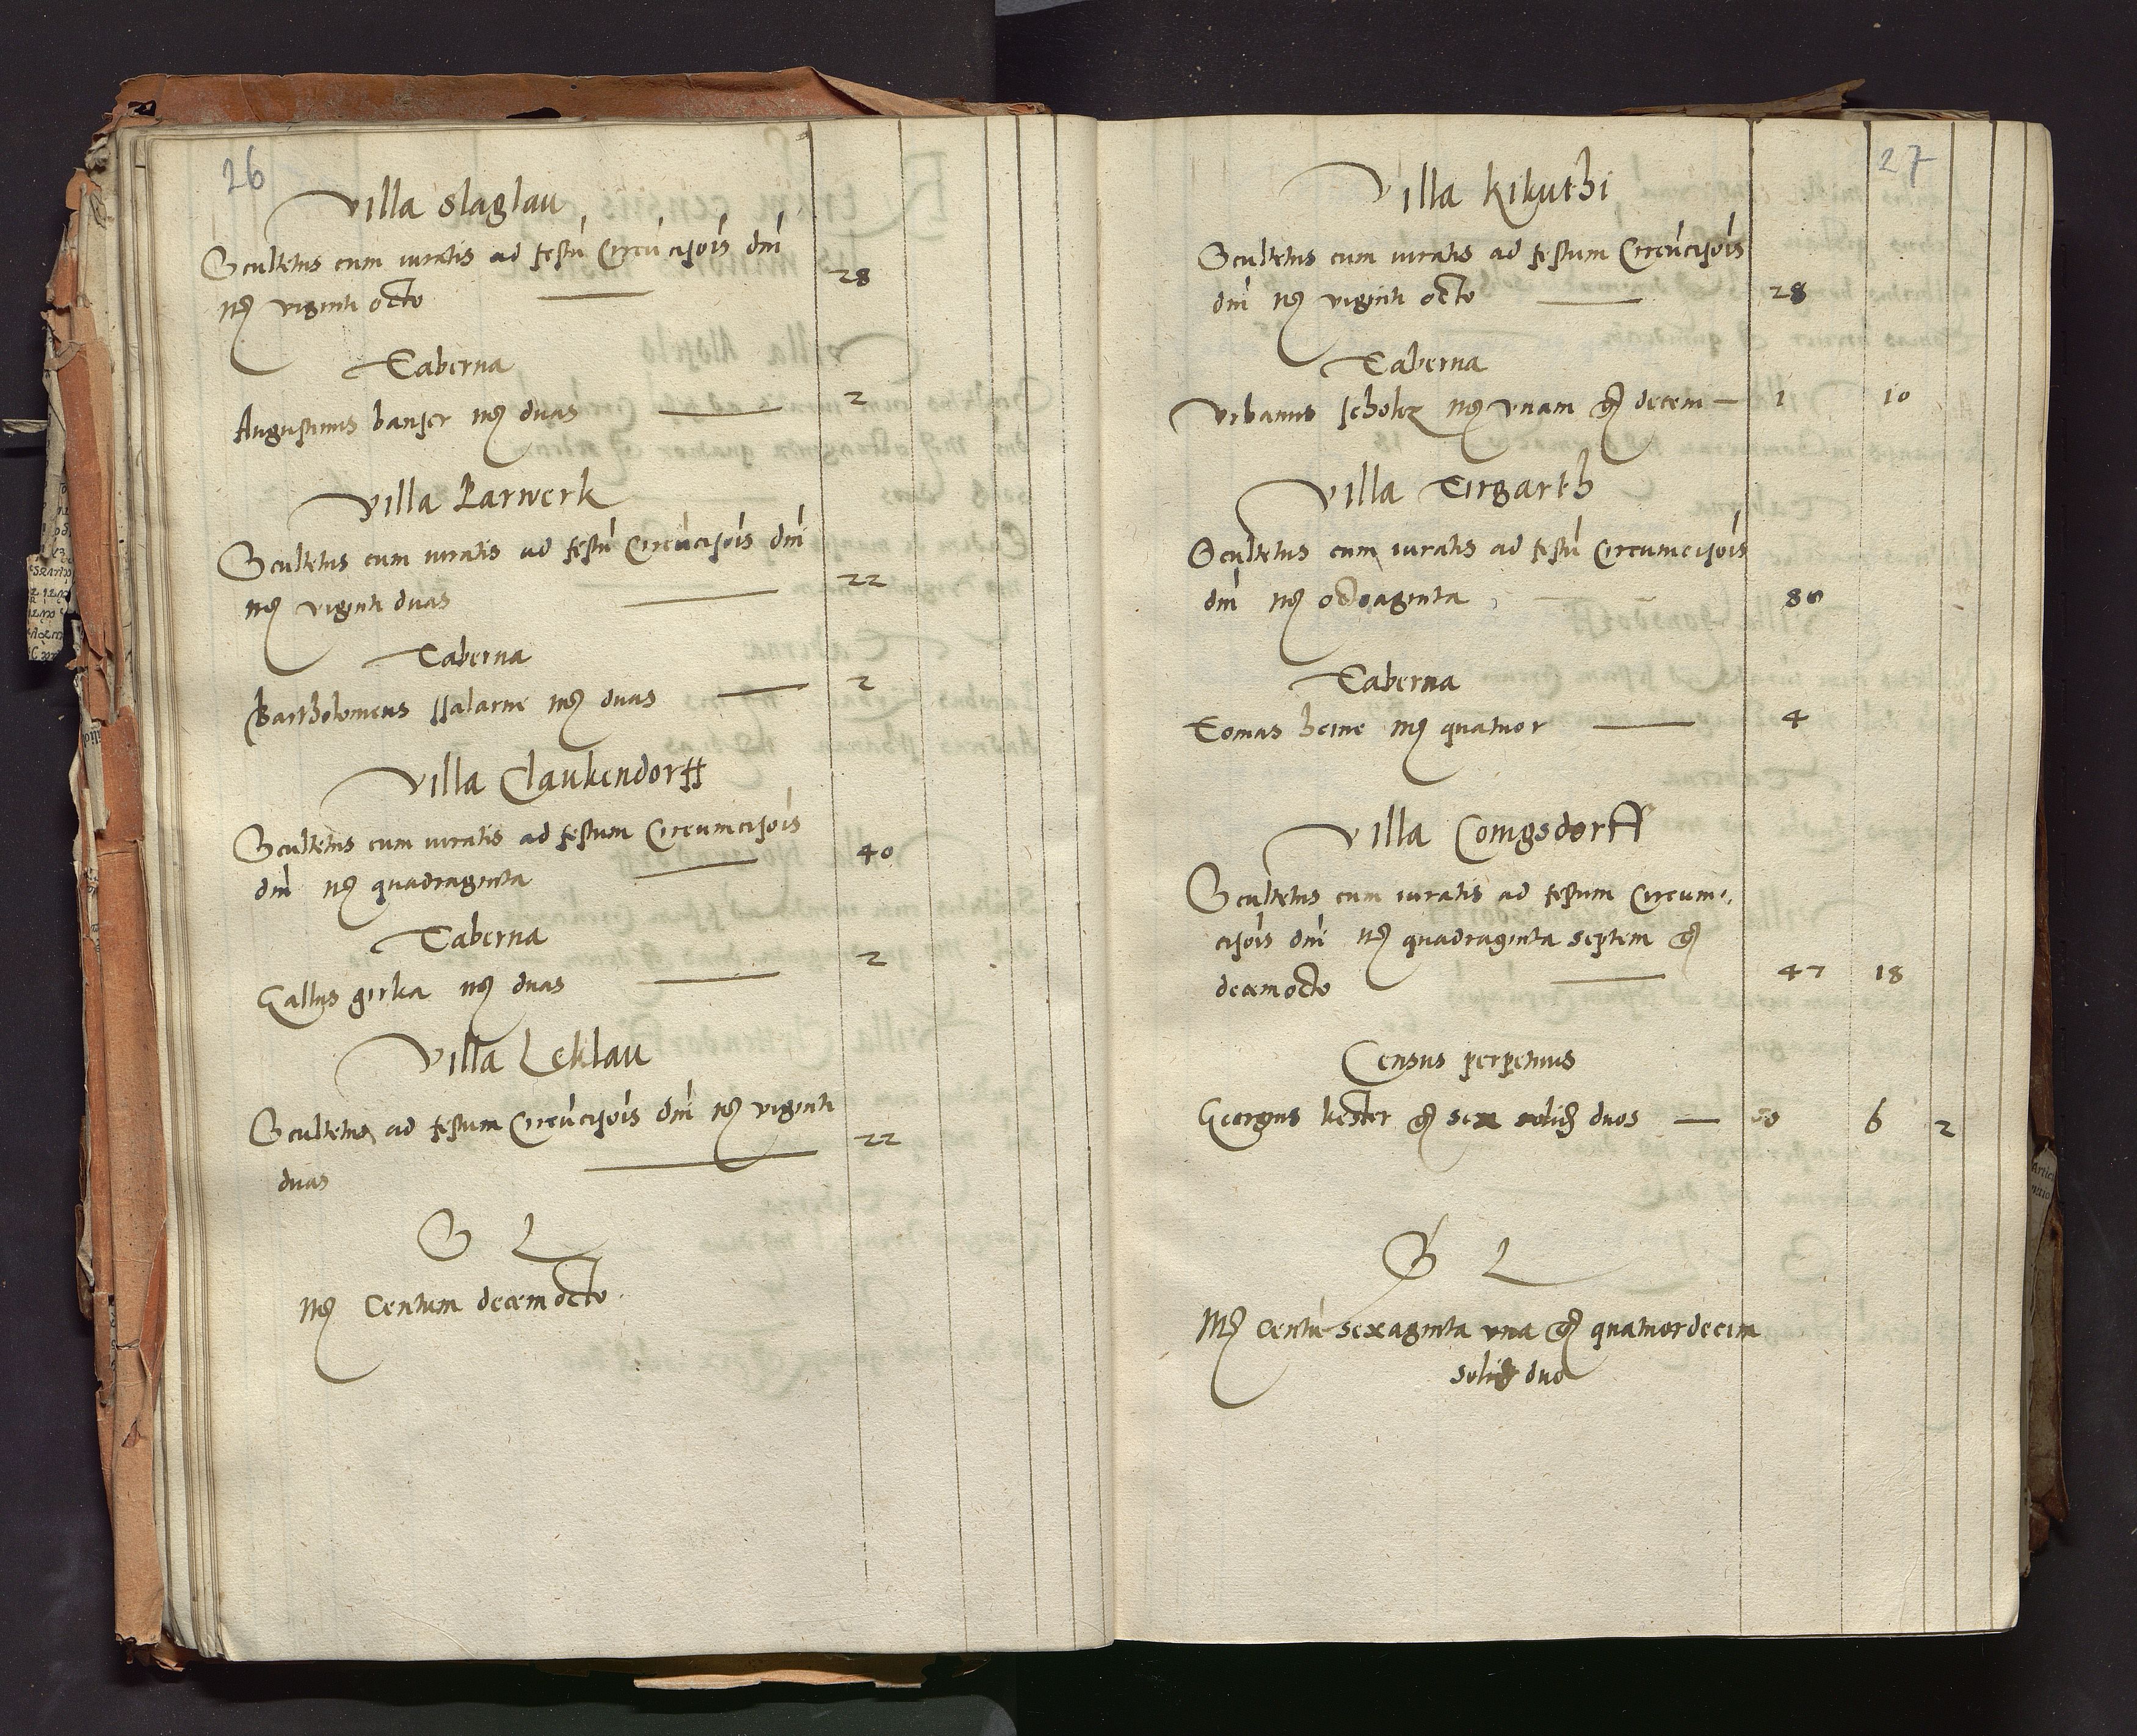 26
Villa Slaglau
Scultetus cum iuratis ad festū Circūcisiōis dnī
mȝ viginti octo — 28
Taberna
Augustinus banser mȝ duas — 2
Villa Barwerk
Scultetus cum iuratis ad festū Circūcisiōis dnī
mȝ viginti duas — 22
Taberna
Bartholomeus mȝ duas — 2
Villa Claukendorff
Scultetus cum iuratis ad festum Circumcisiōis
dnī mȝ quadraginta — 40
Taberna
Gallus girka mȝ duas — 2
Villa Leklau
Scultetus ad festum Circūcisiōis dnī mȝ viginti
duas — 22
S L
mȝ Centum decemocto
27
Villa Kikuthi
Scultetus cum iuratis ad festum Circūcisiōis
dnī mȝ viginti octo — 28
Taberna
Urbanus scholcz mȝ vnam gȝ decem — 1 10
Villa Tirgarth
Scultetus cum iuratis ad festū Circumcisiōis
dnī mȝ octoaginta 80
Taberna
Tomas heine mȝ quatuor — 4
Villa Conigsdorff
Scultetus cum iuratis ad festum Circum-
cisiōis dnī mȝ quadraginta septem gȝ
decemocto — 47 18
Census perpetuus
Georgius kester gȝ sex solidȝ duos — 00 6 2
S L
Mȝ Centū sexaginta vna gȝ quatuordecim
solidȝ duo